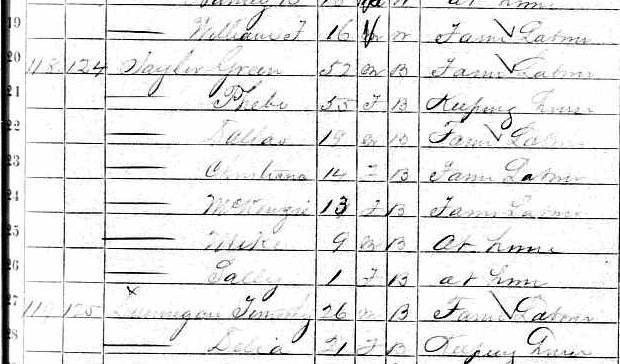 19 — William F 16 W Farm Labor
20 118 124 Taylor Green 52 M B Farm Labor
21 — Phebe 55 F B Keeping House
22 — Dallas 19 M B Farm Labor
23 — Christiana 14 F B Farm Labor
24 — McKenzie 13 F B Farm Labor
25 — Mike 9 M B At home
26 — Sally 1 F B at home
27 119 125 Timothy 26 M B Farm Labor
28 — Delia 21 F B Keeping House